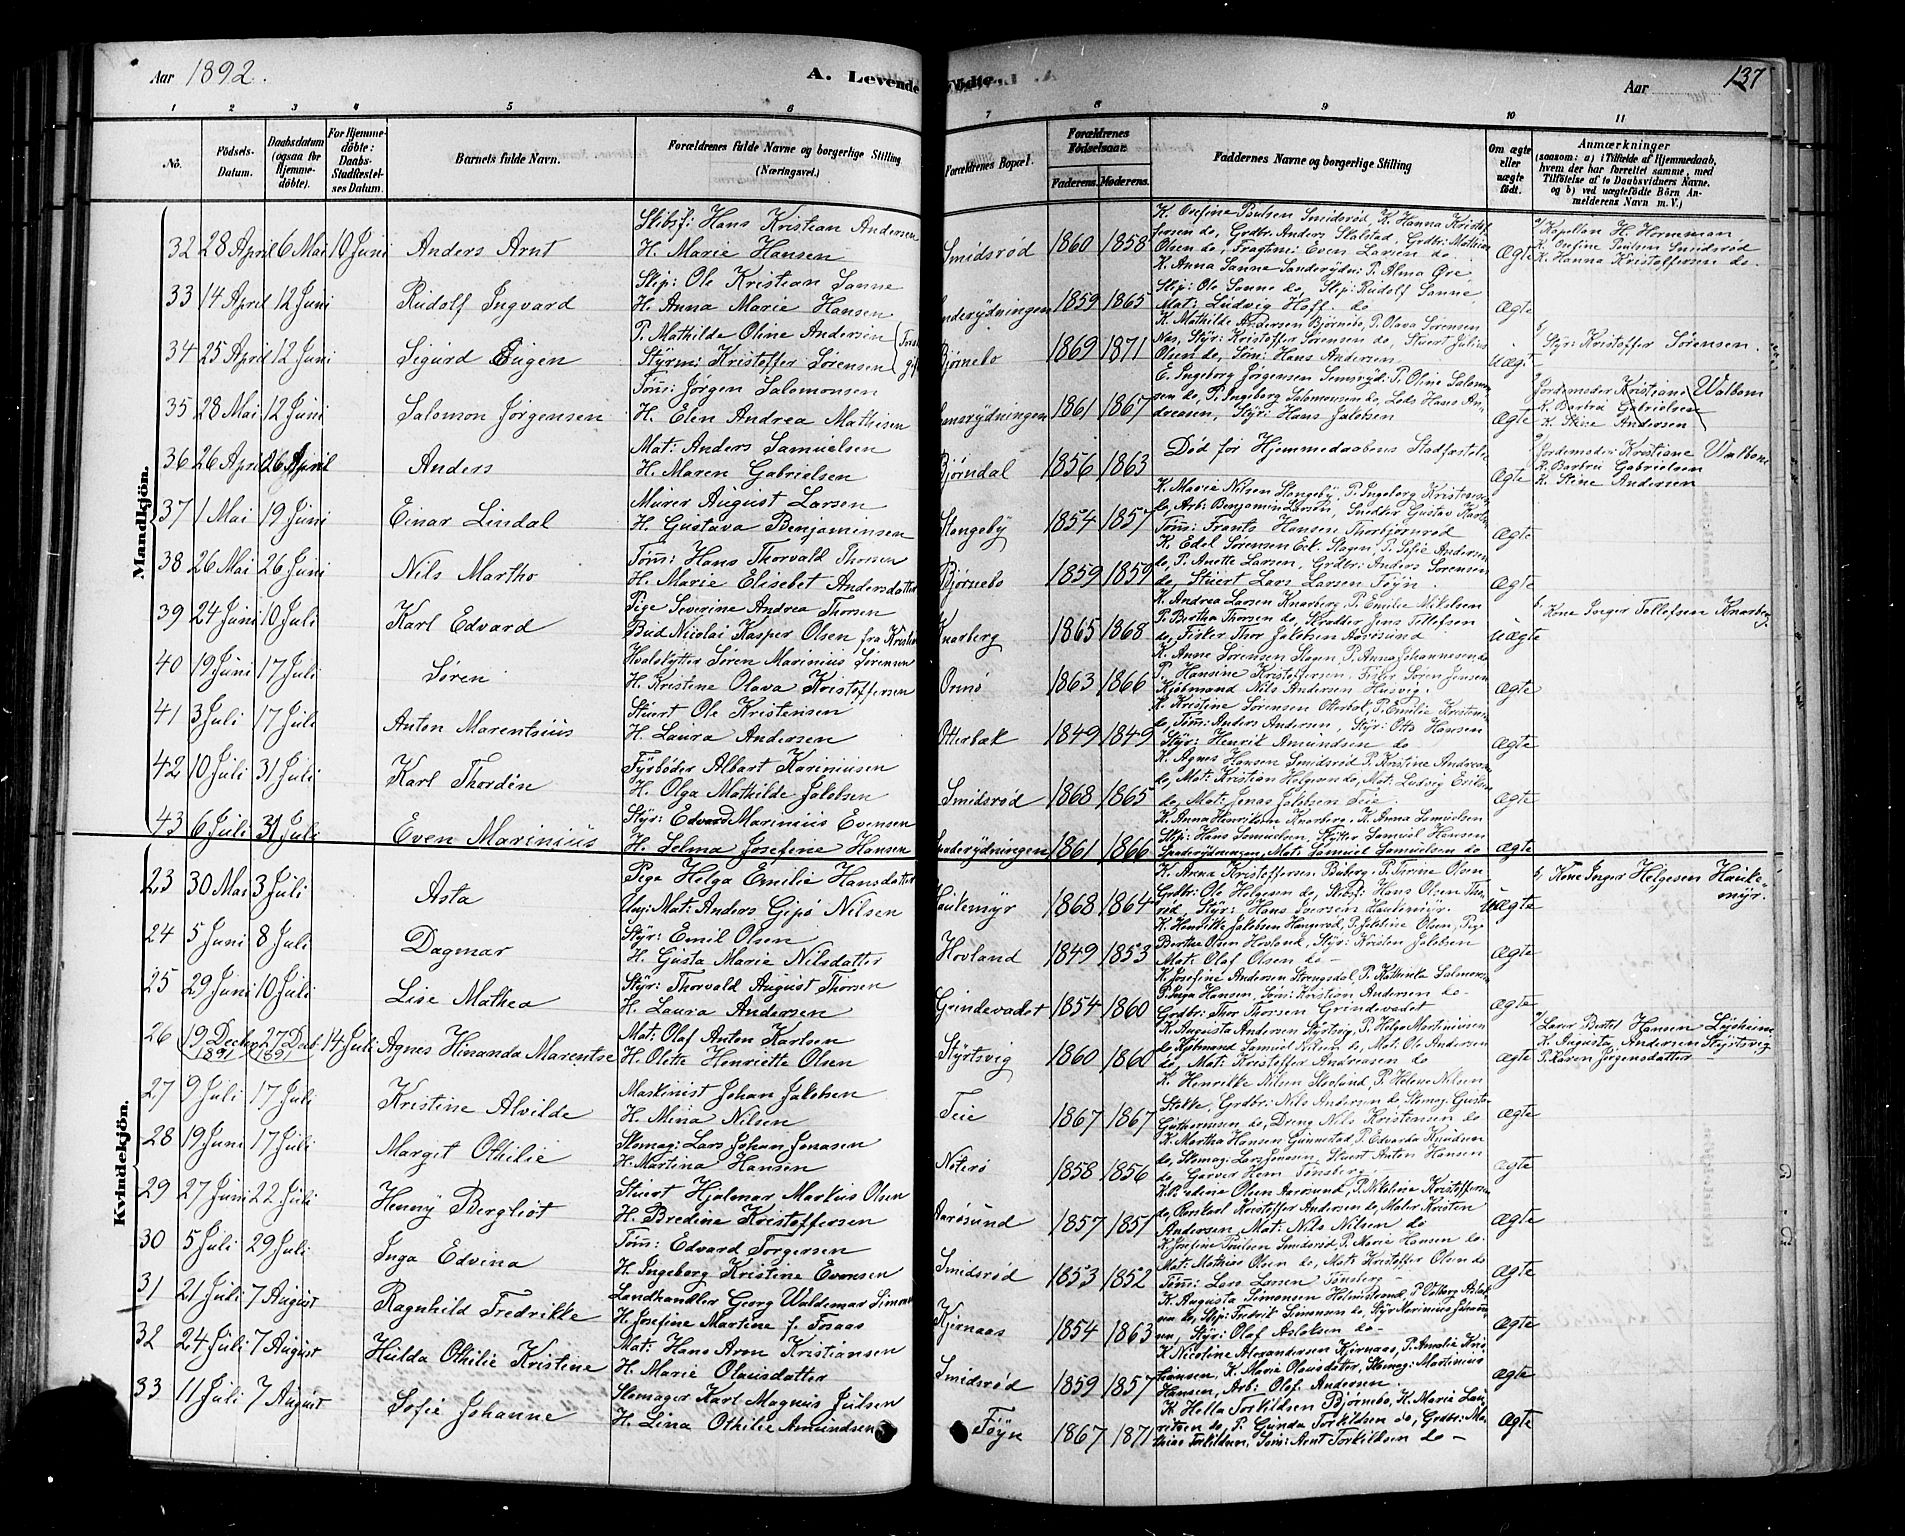 Aar 1892.
A. Levende
Fødte.
Aar
137
1 2 3 4 5 6 7 8 9 10 11
No.
Födsels-
Datum.
Daabsdatum
(ogsaa for
Hjemme-
döbte).
For Hjemme-
döbte:
Daabs-
Stadfæstel-
ses Datum.
Barnets fulde Navn.
Forældrenes fulde Navne og borgerlige Stilling
(Næringsvei.)
Forældrenes Bopæl.
Forældrenes
Födselsaar.
Faderens. Moderens.
Faddernes Navne og borgerlige Stilling
Om ægte
eller
uægte
födt.
Anmærkninger
(saasom: a) i Tilfælde af Hjemmedaab,
hvem der har forrettet samme, med
Tilföielse af to Daabsvidners Navne,
og b) ved uægtefödte Börn An-
melderens Navn m. V.)
Mandkjön.
32 28 April 6 Mai 10 Juni Anders Arnt
Skibsf: Hans Kristian Andersen
H. Marie Hansen
Smidsrød 1860 1858
K. Josefine Poulsen Smidsrød, K. Hanna Kristof
fersen do, Grdbr: Anders Stalstad, Grdbr: Mathias
Olsen do, Fragtm: Even Larsen do
Ægte
a/ Kapellan H. Hornman
K. Josefine Poulsen Smidsrød
K. Hanna Kristoffersen do.
33 14 April 12 Juni Rudolf Ingvard
Skip: Ole Kristian Sanne
H. Anna Marie Hansen
Sanderydningen 1859 1865
K. Anna Sanne Sanderydn: P. Alma Øre
Skip: Ole Sanne do, Skip: Rudolf Sanne,
Mat: Ludvig Hoff do
Ægte
34 25 April 12 Juni Sigurd Eugen
P. Mathilde Oline Andersen
Styrm: Kristoffer Sørensen
Bjørnebo 1869 1871
K. Mathilde Andersen Bjørnebo, P. Olava Sørensen
Nes, Styr: Kristoffer Sørensen do, Stuert Julius
Olsen do, Tøm: Hans Andersen
Uægt
Styr: Kristoffer Sørensen.
35 28 Mai 12 Juni Salomon Jørgensen
Tøm: Jørgen Salomonsen
H. Elen Andrea Mathisen
Semsrydningen 1861 1867
E. Ingeborg Jørgensen Semsryd: P. Oline Salomon
sen do, P. Ingeborg Salomonsen do, Lods Hans An-
dreasen, Styr: Hans Jakobsen
Ægte
Jordemoder Kristiane Walbom
K. Barbra Gabrielsen
K. Stine Andersen
36 26 April 26 April Anders
Mat: Anders Samuelsen
H. Maren Gabrielsen
Bjøndal 1856 1863
Død før Hjemmedaabens Stadfæstelse
Ægte
Jordemoder: Kristiane Walbom
K. Barbra Gabrielsen
K. Stine Andersen
37 1 Mai 19 Juni Einar Lindal
Murer August Larsen
H. Gustava Benjaminsen
Stangeby 1854 1857
K. Marie Nilsen Stangeby, P. Ingeborg Kristensen
do, Arb: Benjamin Larsen, Snedker Gustav Karlsen
Tøm: Frants Hansen Thorbjørnrød
Ægte
38 26 Mai 26 Juni Nils Martho
Tøm: Hans Thorvald Thorsen
H. Marie Elisebet Andersdatter
Bjørnebo 1859 1859
K. Edel Sørensen Eck Slagn, P. Sofie Andersen
do, P. Anette Larsen, Grdbr: Anders Sørensen
do, Stuert Lars Larsen Føyn
Ægte
39 24 Juni 10 Juli Karl Edvard
Pige Severine Andrea Thorsen
Bud Nicolai Kasper Olsen fra Kristia
Knarberg 1865 1868
K. Andrea Larsen Knarberg, P. Emilie Mikelsen
P. Bertha Thorsen do, Skrædder Jens Tollefsen
do, Fisker Thor Jakobsen Aarøsund
Uægte
Kone Inger Tollefsen Knarberg
40 19 Juni 17 Juli Søren
Hvalskytter Søren Marinius Sørensen
H. Kristine Olava Kristoffersen
Ormø 1863 1866
K. Anne Sørensen Slagn, P. Anna Johannesen do
P. Hansine Kristoffersen, Fisker Søren Jensen
Kjøbmand Nils Andersen Husvig.
Ægte
41 3 Juli 17 Juli Anton Marentsius
Stuert Ole Kristensen
H. Laura Andersen
Otterbæk 1849 1849
K. Kristine Sørensen Otterbæk, P. Emilie Kristensen
do, Tøm: Anders Andersen, Styr: Otto Hansen
Styr: Henrik Amundsen do
Ægte
42 10 Juli 31 Juli Karl Thordén
Fyrbøder Albart Kariniusen
H. Olga Mathilde Jakobsen
Smidsrød 1868 1865
K. Agnes Hansen Smidsrød P. Kristine Andreasen
do, Mat: Kristian Helgesen do, Mat: Ludvig Eriksen
do, Mat: Jonas Jakobsen Teie
Ægte
43 6 Juli 31 Juli Even Marinius
Styr: Edvard Marinius Evensen
H. Selma Josefine Hansen
Sanderydningen 1861 1866
K. Anna Henriksen Knarberg, K. Anna Samuelsen
Skip: Hans Samuelsen, Skytter Samuel Hansen
Sanderydningen, Mat: Samuel Samuelsen do
Ægte
Kvindekjön.
23 30 Mai 3 Juli Asta
Pige Helga Emilie Hansdatter
Ung: Mat: Anders Gipø Nilsen
Haukemyr 1868 1864
K. Anna Kristoffersen Buberg, P. Thrine Olsen
Grdbr: Ole Helgesen do, Skibsf: Hans Olsen Tho-
rød, Styr: Hans Iversen Haukemyr.
Uægte
Kone Inger Helgesen Hauke-
myr.
24 5 Juni 8 Juli Dagmar
Styr: Emil Olsen
H. Gusta Marie Nilsdatter
Hovland 1849 1853
K. Henrikke Jakobsen Hangerød, P. Jakobine Olsen, Pige
Berthe Olsen Hovland, Styr: Kristen Jakobsen
Mat: Olaf Olsen do-
Ægte
25 29 Juni 10 Juli Lise Mathea
Styr: Thorvald August Thorsen
H. Laura Andersen
Grindevadet 1854 1860
K. Josefine Andersen Strengsdal, P. Kathinka Salmonsen
P. Inga Hansen, Tøm: Kristian Andersen do-
Grdbr: Thor Thorsen Grindevadet
Ægte
26 19 Decbr 1891 27 Decb. 1891 14 Juli Agnes Hinanda Marentse
Mat: Olaf Anton Karlsen
H. Olette Henriette Olsen
Styrtsvig 1860 1860
K. Augusta Andersen Styrtsvig, P. Helga Martiniusen
do, Kjøbmand Samuel Nilsen do, Mat: Ole Andersen
do, Mat: Kristoffer Andreasen do
Ægte
a/ Lærer Bertel Hansen Lysheim
K. Augusta Andersen Styrtsvig
P. Karen Jørgensdatter
27 9 Juli 17 Juli Kristine Alvilde
Maskinist Johan Jakobsen
H. Mina Nilsen
Teie 1867 1867
K. Henrikke Nilsen Stokke, P. Helene Nilsen
Stokke, Grdbr: Nils Andersen do Skomag: Gustav
Guttormsen do, Dreng Nils Kristensen do
Ægte
28 19 Juni 17 Juli Margit Othilie
Skomag: Lars Johan Jonasen
H. Martina Hansen
Nøterø 1858 1856
K. Martha Hansen Gunnestad, P. Edvarda Knudsen
do, Skomag: Lars Jensen, Stuert Anton Hansen
do, Garver Hem Tønsberg
Ægte
29 27 Juni 22 Juli Henny Bergliot
Stuert Hjalmar Markus Olsen
H. Bredine Kristoffersen
Aarøsund 1857 1851
K. Bredine Olsen Aarøsund, P. Nikoline Kristoffersen
do, Ronkarl Kristoffer Andersen do, Maler Kristen
Andersen, Mat: Nils Nilsen do
Ægte
30 5 Juli 29 Juli Inga Edvina
Tøm: Edvard Torgersen
H. Ingeborg Kristine Evensen
Smidsrød 1853 1852
K. Josefine Poulsen Smidsrød, P. Marie Hansen do.
Mat: Mathias Olsen do, Mat: Kristoffer Olsen do
Tøm: Lars Larsen Tønsberg
Ægte
31 21 Juli 7 August Ragnhild Fredrikke
Landhandler Georg Waldemar Simonsen
H. Josefine Martine f. Foraas
Kjørnaas 1854 1863
K. Augusta Simonsen Holmestrand, P. Valborg Aslak
sen do, Skip: Fredrik Simonsen do, Styr Marinius Johann
sen, Styr: Olaf Aslaksen do-
Ægte
32 24 Juli 7 August Hulda Othilie Kristine
Mat: Hans Aron Kristiansen
H. Marie Olausdatter
Smidsrød 1859 1857
K. Nicoline Alexandersen Kjørnaas, P. Amalie Kris
tiansen, K. Marie Olausdatter, Skomag: Martinius
Hansen, Arb: Olaf Andersen.
Ægte
33 11 Juli 7 August Sofie Johanne
Skomager Karl Magnus Julsen
H. Lina Othilie Amundsen
Føyn 1867 1871
K. Hella Torkildsen Bjørnebo, K. Maria Lau-
ritsen do, P. Gunda Torkildsen do, Grdbr: Ma-
thias Torkildsen, Tøm: Arnt Torkildsen do-
Ægte